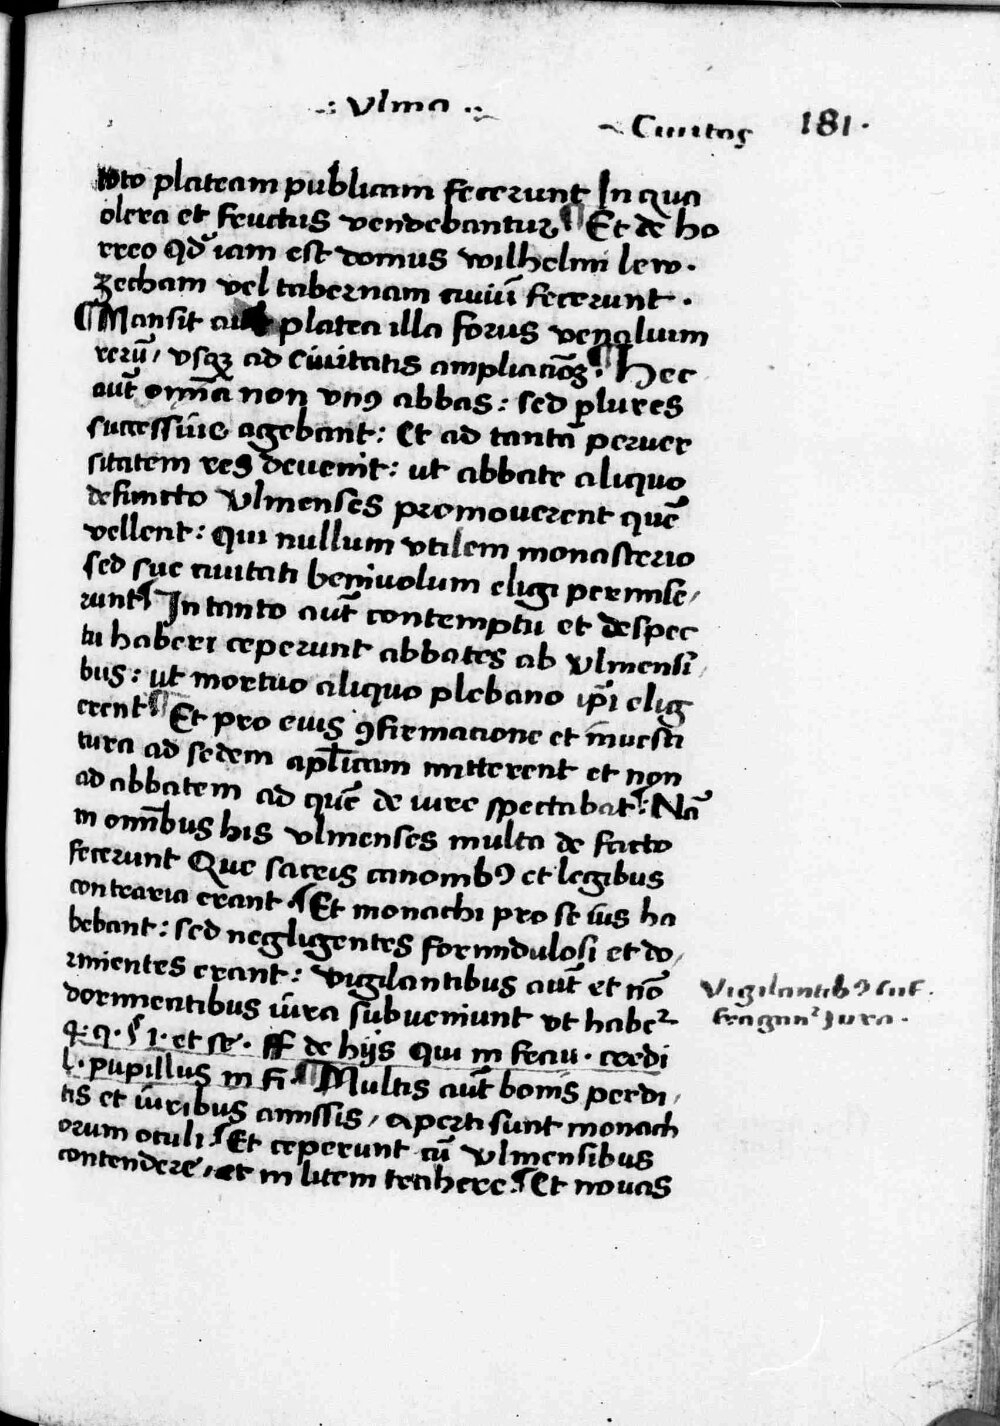 .: Vlma ..
Ciuitas 181.
toto plateam publicam fecerunt In qua
olera et fructus vendebantur ¶ Et de ho
rreo qd iam est domus wilhelmi lew.
zecham vel tabernam ciuiū fecerunt.
¶ Mansit autē platea illa forus venalium
rerū, vsqȝ ad ciuitatis ampliacōȝ. ¶ Hec
autē omīa non vnꝰ abbas: sed plures
successiue agebant: Et ad tantā peruer
sitatem res deuenit: ut abbate aliquo
defuncto Vlmenses promouerent quē
vellent: Qui nullum vtilem monasterio
sed sue ciuitati beniuolum eligi permise,
runt ¶ In tanto aūt contemptu et despec
tu haberi ceperunt abbates ab Vlmensi,
bus: ut mortuo aliquo plebano ip̄i elig
erent ¶ Et pro eius ꝯfirmacione et inuesti
tura ad sedem apl̄icam mitterent et non
ad abbatem ad quē de iure spectabat ¶ Nā
in omībus his vlmenses multa de facto
fecerunt Que sacris canonibꝰ et legibus
contraria erant. ¶ Et monachi pro se ius ha
bebant: sed negligentes formidulosi et do,
rmientes erant: Vigilantibus aūt et nō
dormientibus iura subueniunt vt habeꝛ
4. q. § 1. et se. ff de hijs qui in frau. credi
l. pupillus in fi. ¶ Multis aūt bonis perdi,
tis et iuribus amissis, aperti sunt monach
orum oculi. ¶ Et ceperunt cū Vlmensibus
contendere, et in litem trahere. ¶ Et nouas
Vigilantibꝰ suf.
fraganꝛ Jura.